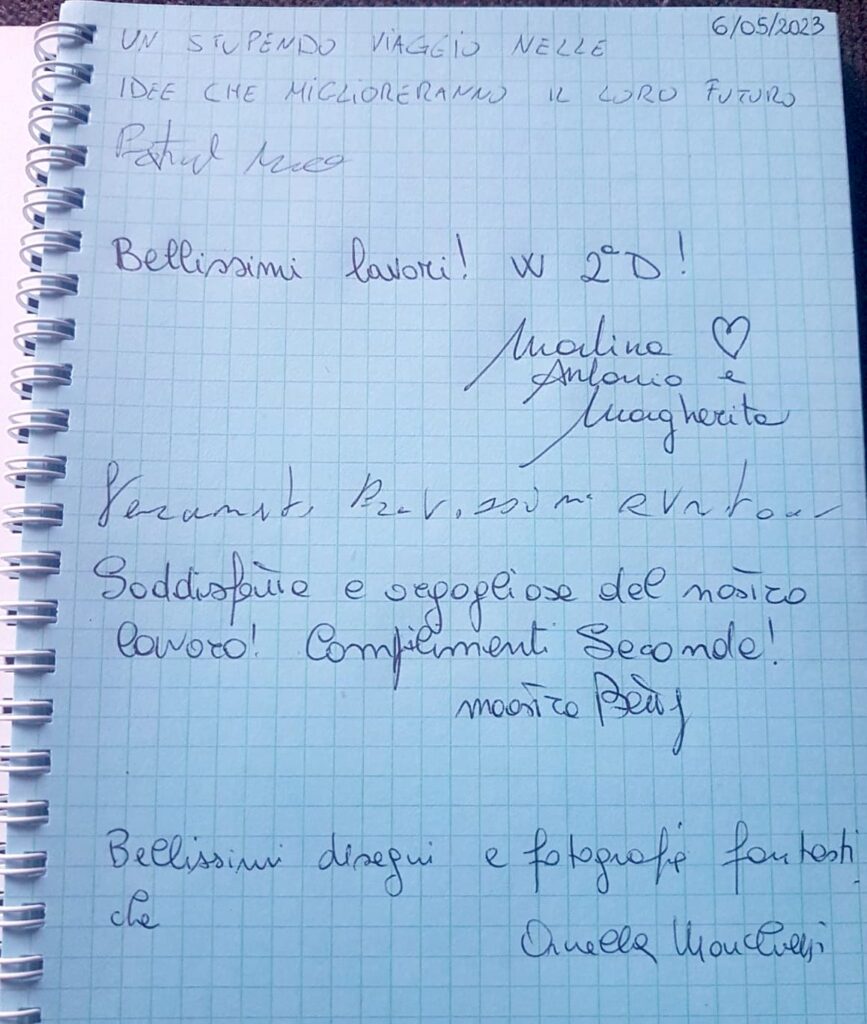 6/05/2023
UN STUPENDO VIAGGIO NELLE
IDEE CHE MIGLIORERANNO IL LORO FUTURO
Bellissimi lavori! W 2°D!
Martina ♡
Antonio e
Margherita
Soddisfatte e orgogliose del nostro
lavoro! Complimenti Seconde!
maestra Betty
Bellissimi disegni e fotografie fantasti
che
Ornella